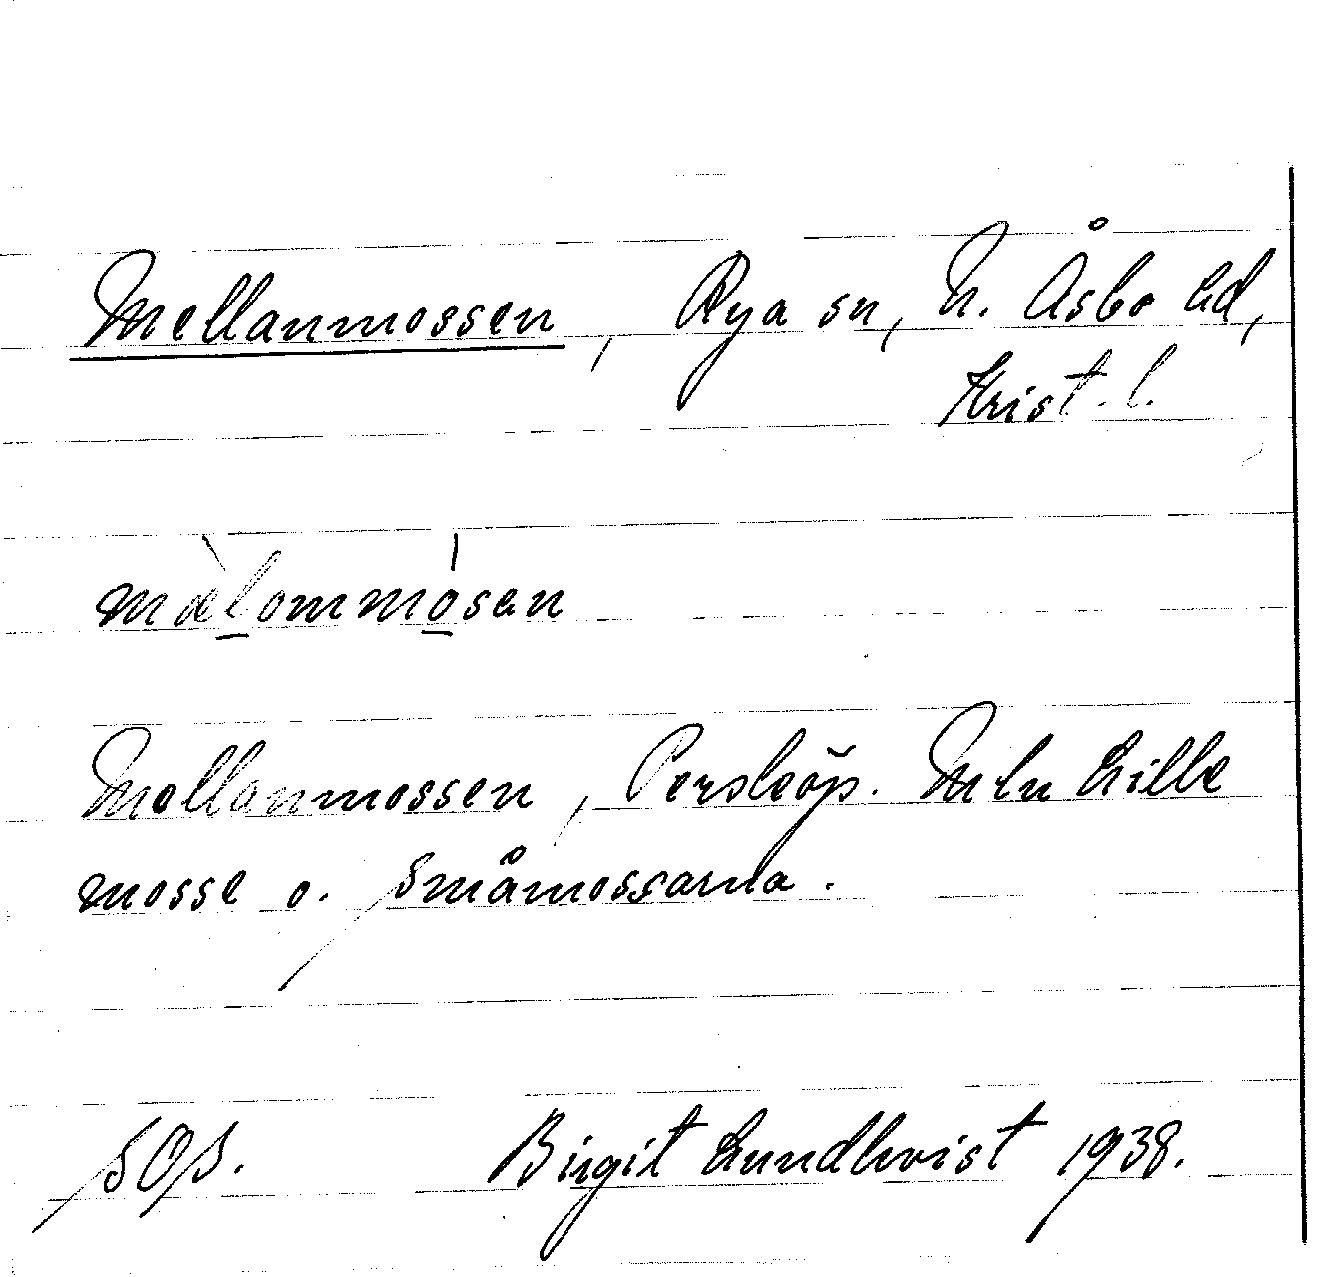 Mellanmossen, Rya sn, N. Åsbo hd,
Krist. l.
mælommosen
Mellanmossen, Persköp. Mln Lille
mosse o. Småmossarna.
SOS. Birgit Lundkvist 1938.